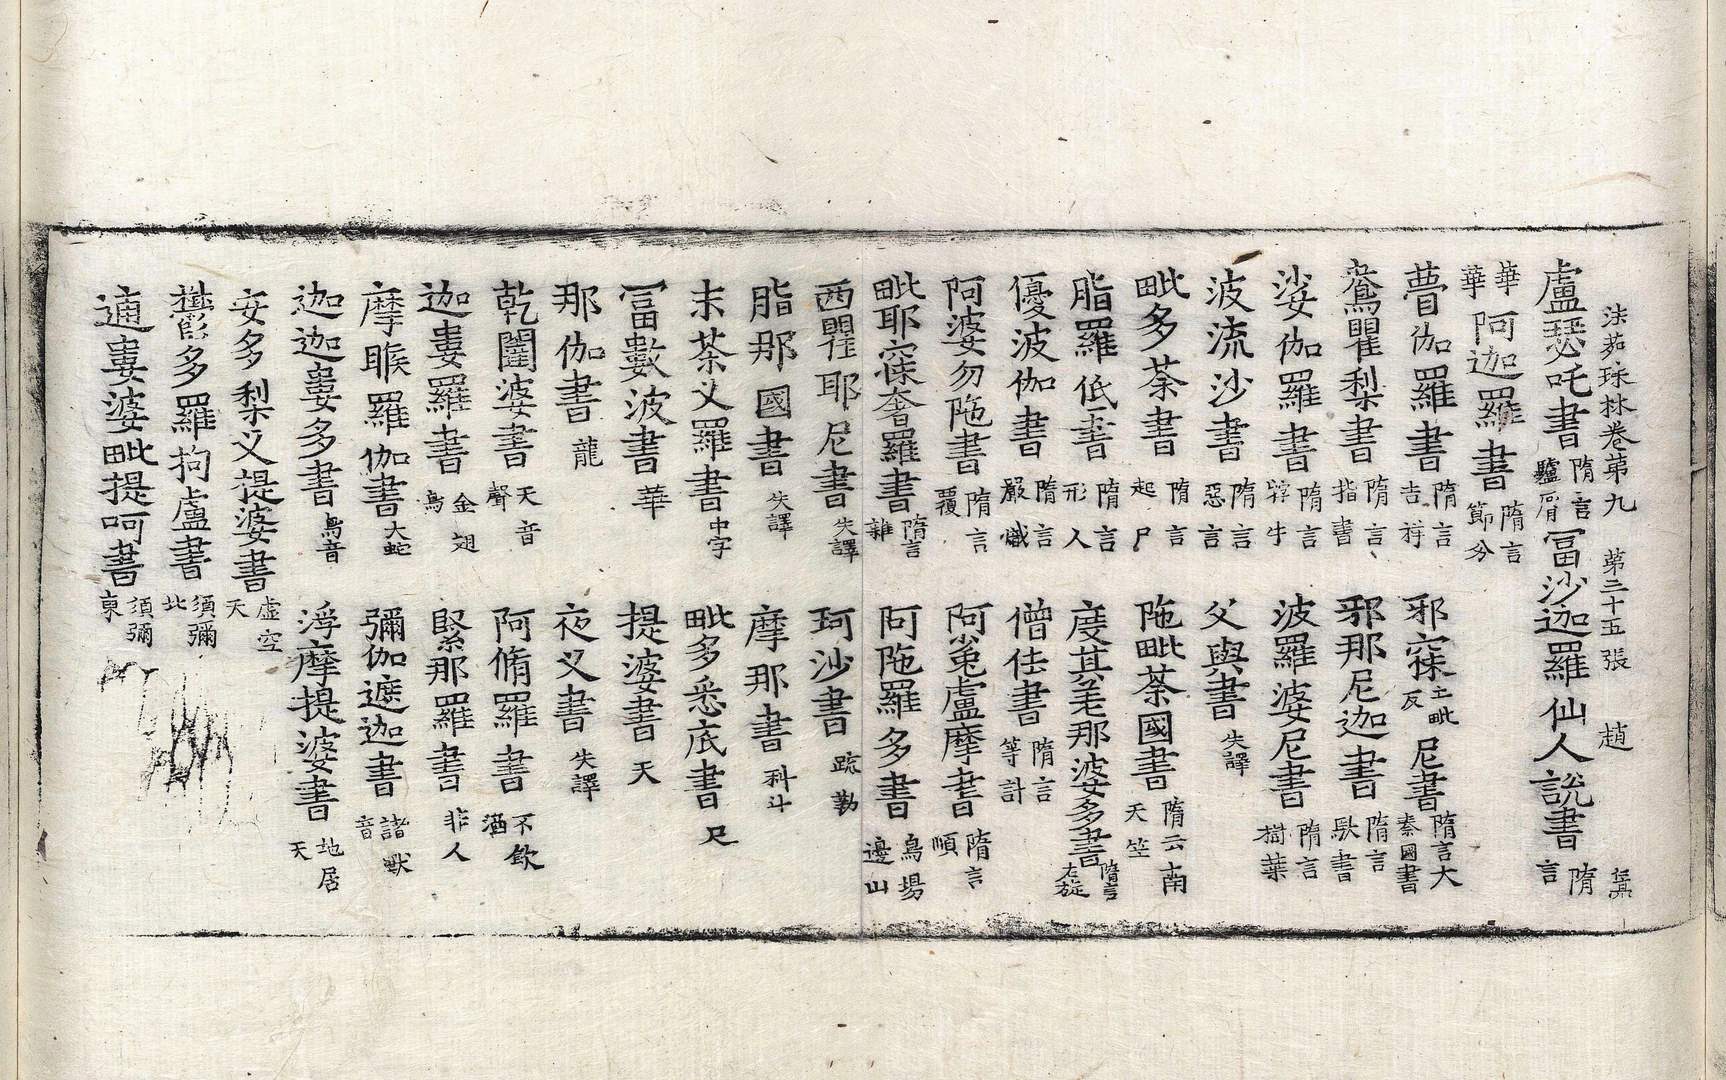 法苑珠林卷第九 第二十五張 趙
盧瑟吒書 隋言驢脣 冨沙迦羅仙人說書 隋言
華華 阿迦羅書 隋言節分
瞢伽羅書 隋言吉祥 邪寐亡毗反尼書 隋言大秦國書
鴦瞿梨書 隋言指書 邪那尼迦書 隋言馱書
娑伽羅書 隋言牸牛 波羅婆尼書 隋言樹葉
波流沙書 隋言惡言 父與書 失譯
毗多荼書 隋言起尸 陁毗荼國書 隋云南天竺
脂羅低書 隋言形人 度其差那婆多書 隋言右旋
優波伽書 隋言嚴熾 僧佉書 隋言等計
阿婆勿陁書 隋言覆 阿㝹盧摩書 隋言順
毗耶寐奢羅書 隋言雜 阿陁羅多書 烏場邊山
西瞿耶尼書 失譯 珂沙書 疏勒
脂那國書 失譯 摩那書 科斗
末荼叉羅書 中字 毗多悉底書 尺
冨數波書 華 提婆書 天
那伽書 龍 夜叉書 失譯
乾闥婆書 天音聲 阿脩羅書 不飲酒
迦婁羅書 金翅鳥 緊那羅書 非人
摩睺羅伽書 大蛇 彌伽遮迦書 諸獸音
迦迦婁多書 鳥音 浮摩提婆書 地居天
安多梨叉提婆書 虛空天
欝多羅拘盧書 須彌北
逋婁婆毗提呵書 須彌東